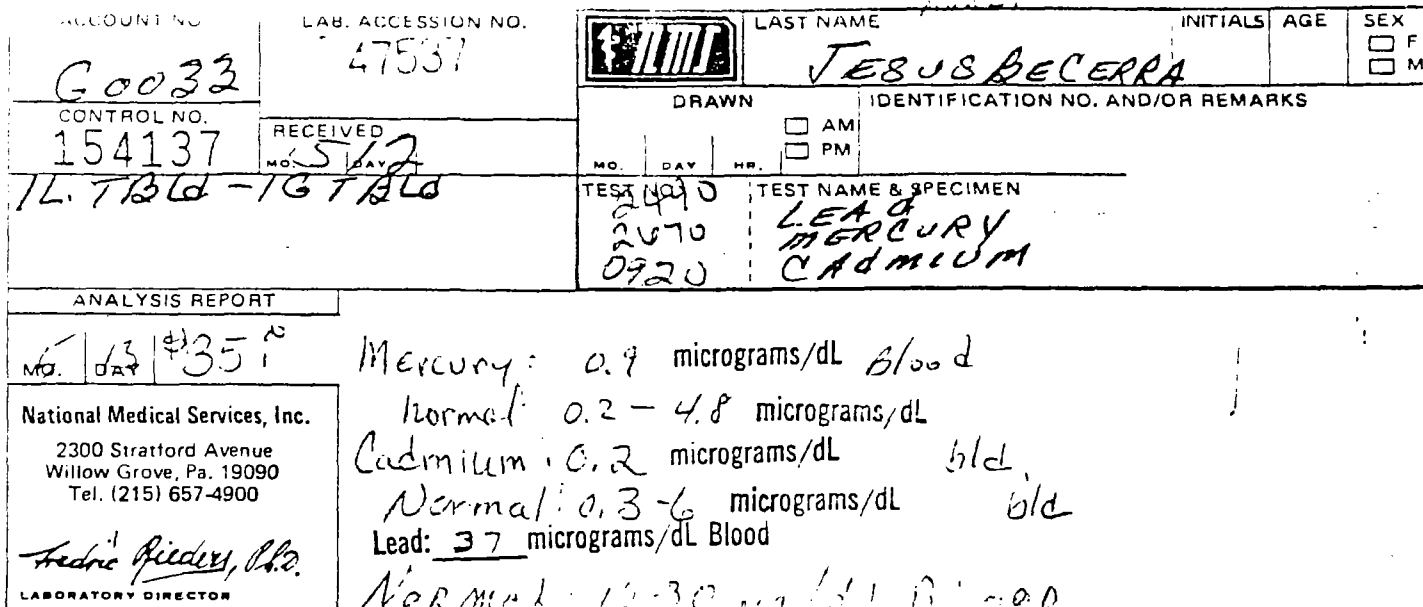 ACCOUNT NO
G0033
LAB. ACCESSION NO.
47537
CONTROL NO.
154137
RECEIVED
MO. 5/12 DAY
NMS
LAST NAME
INITIALS
AGE
SEX
F
M
JESUS BECERRA
DRAWN
AM
PM
MO. DAY HR.
IDENTIFICATION NO. AND/OR REMARKS
1L. TBLd - 1G TBLd
TEST NO. TEST NAME & SPECIMEN
2490 LEAd
2670 MERCURY
0920 CAdMIUM
ANALYSIS REPORT
MO. DAY $35
National Medical Services, Inc.
2300 Stratford Avenue
Willow Grove, Pa. 19090
Tel. (215) 657-4900
Fredric Rieders, Ph.D.
LABORATORY DIRECTOR
Mercury: 0.9 micrograms/dL Blood
Normal: 0.2 - 4.8 micrograms/dL
Cadmium: 0.2 micrograms/dL bld.
Normal: 0.3-6 micrograms/dL bld
Lead: 37 micrograms/dL Blood